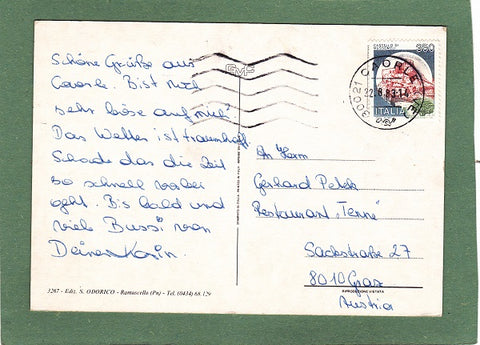 Schöne Grüße aus
Caorle. Bist noch
sehr böse auf mich?
Das Wetter ist traumhaft.
Schade das die Zeit
so schnell vorbei
geht. Bis bald und
viele Bussi von
Deiner Karin.
GMF
350
30021 CAORLE VE
22.8.83.14
ITALIA
An Herrn
Gerhard Petek
Restaurant „Tenne“
Sackstraße 27
8010 Graz
Austria
3267 - Ediz. S. ODORICO - Ramuscello (Pn) - Tel. (0434) 68.129
RIPRODUZIONE VIETATA